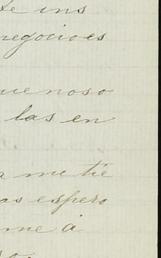 te ins
negocioes
ue noso
las en
a me tie
as espero
me a